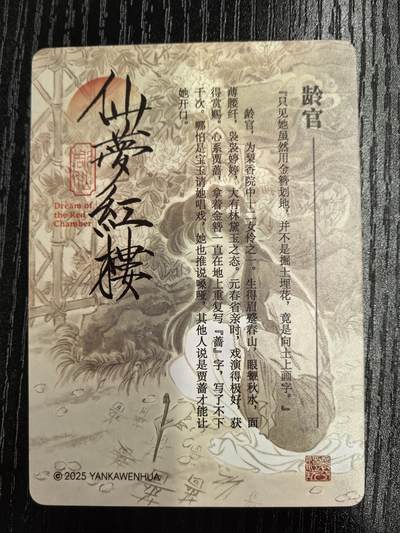 龄官
『只见她虽然用金簪划地，并不是掘土埋花，竟是向土上画字。』
龄官，为梨香院中十二女伶之一。生得眉蹙春山，眼颦秋水，面
薄腰纤，袅袅婷婷，大有林黛玉之态。元春省亲时，戏演得极好，获
得赏赐。心系贾蔷，拿着金簪一直在地上重复写『蔷』字，写了不下
千次，哪怕是宝玉请她唱戏，她也推说嗓哑，其他人说是贾蔷才能让
她开口。
仙梦红楼
Dream of
the Red
Chamber
© 2025 YANKAWENHUA